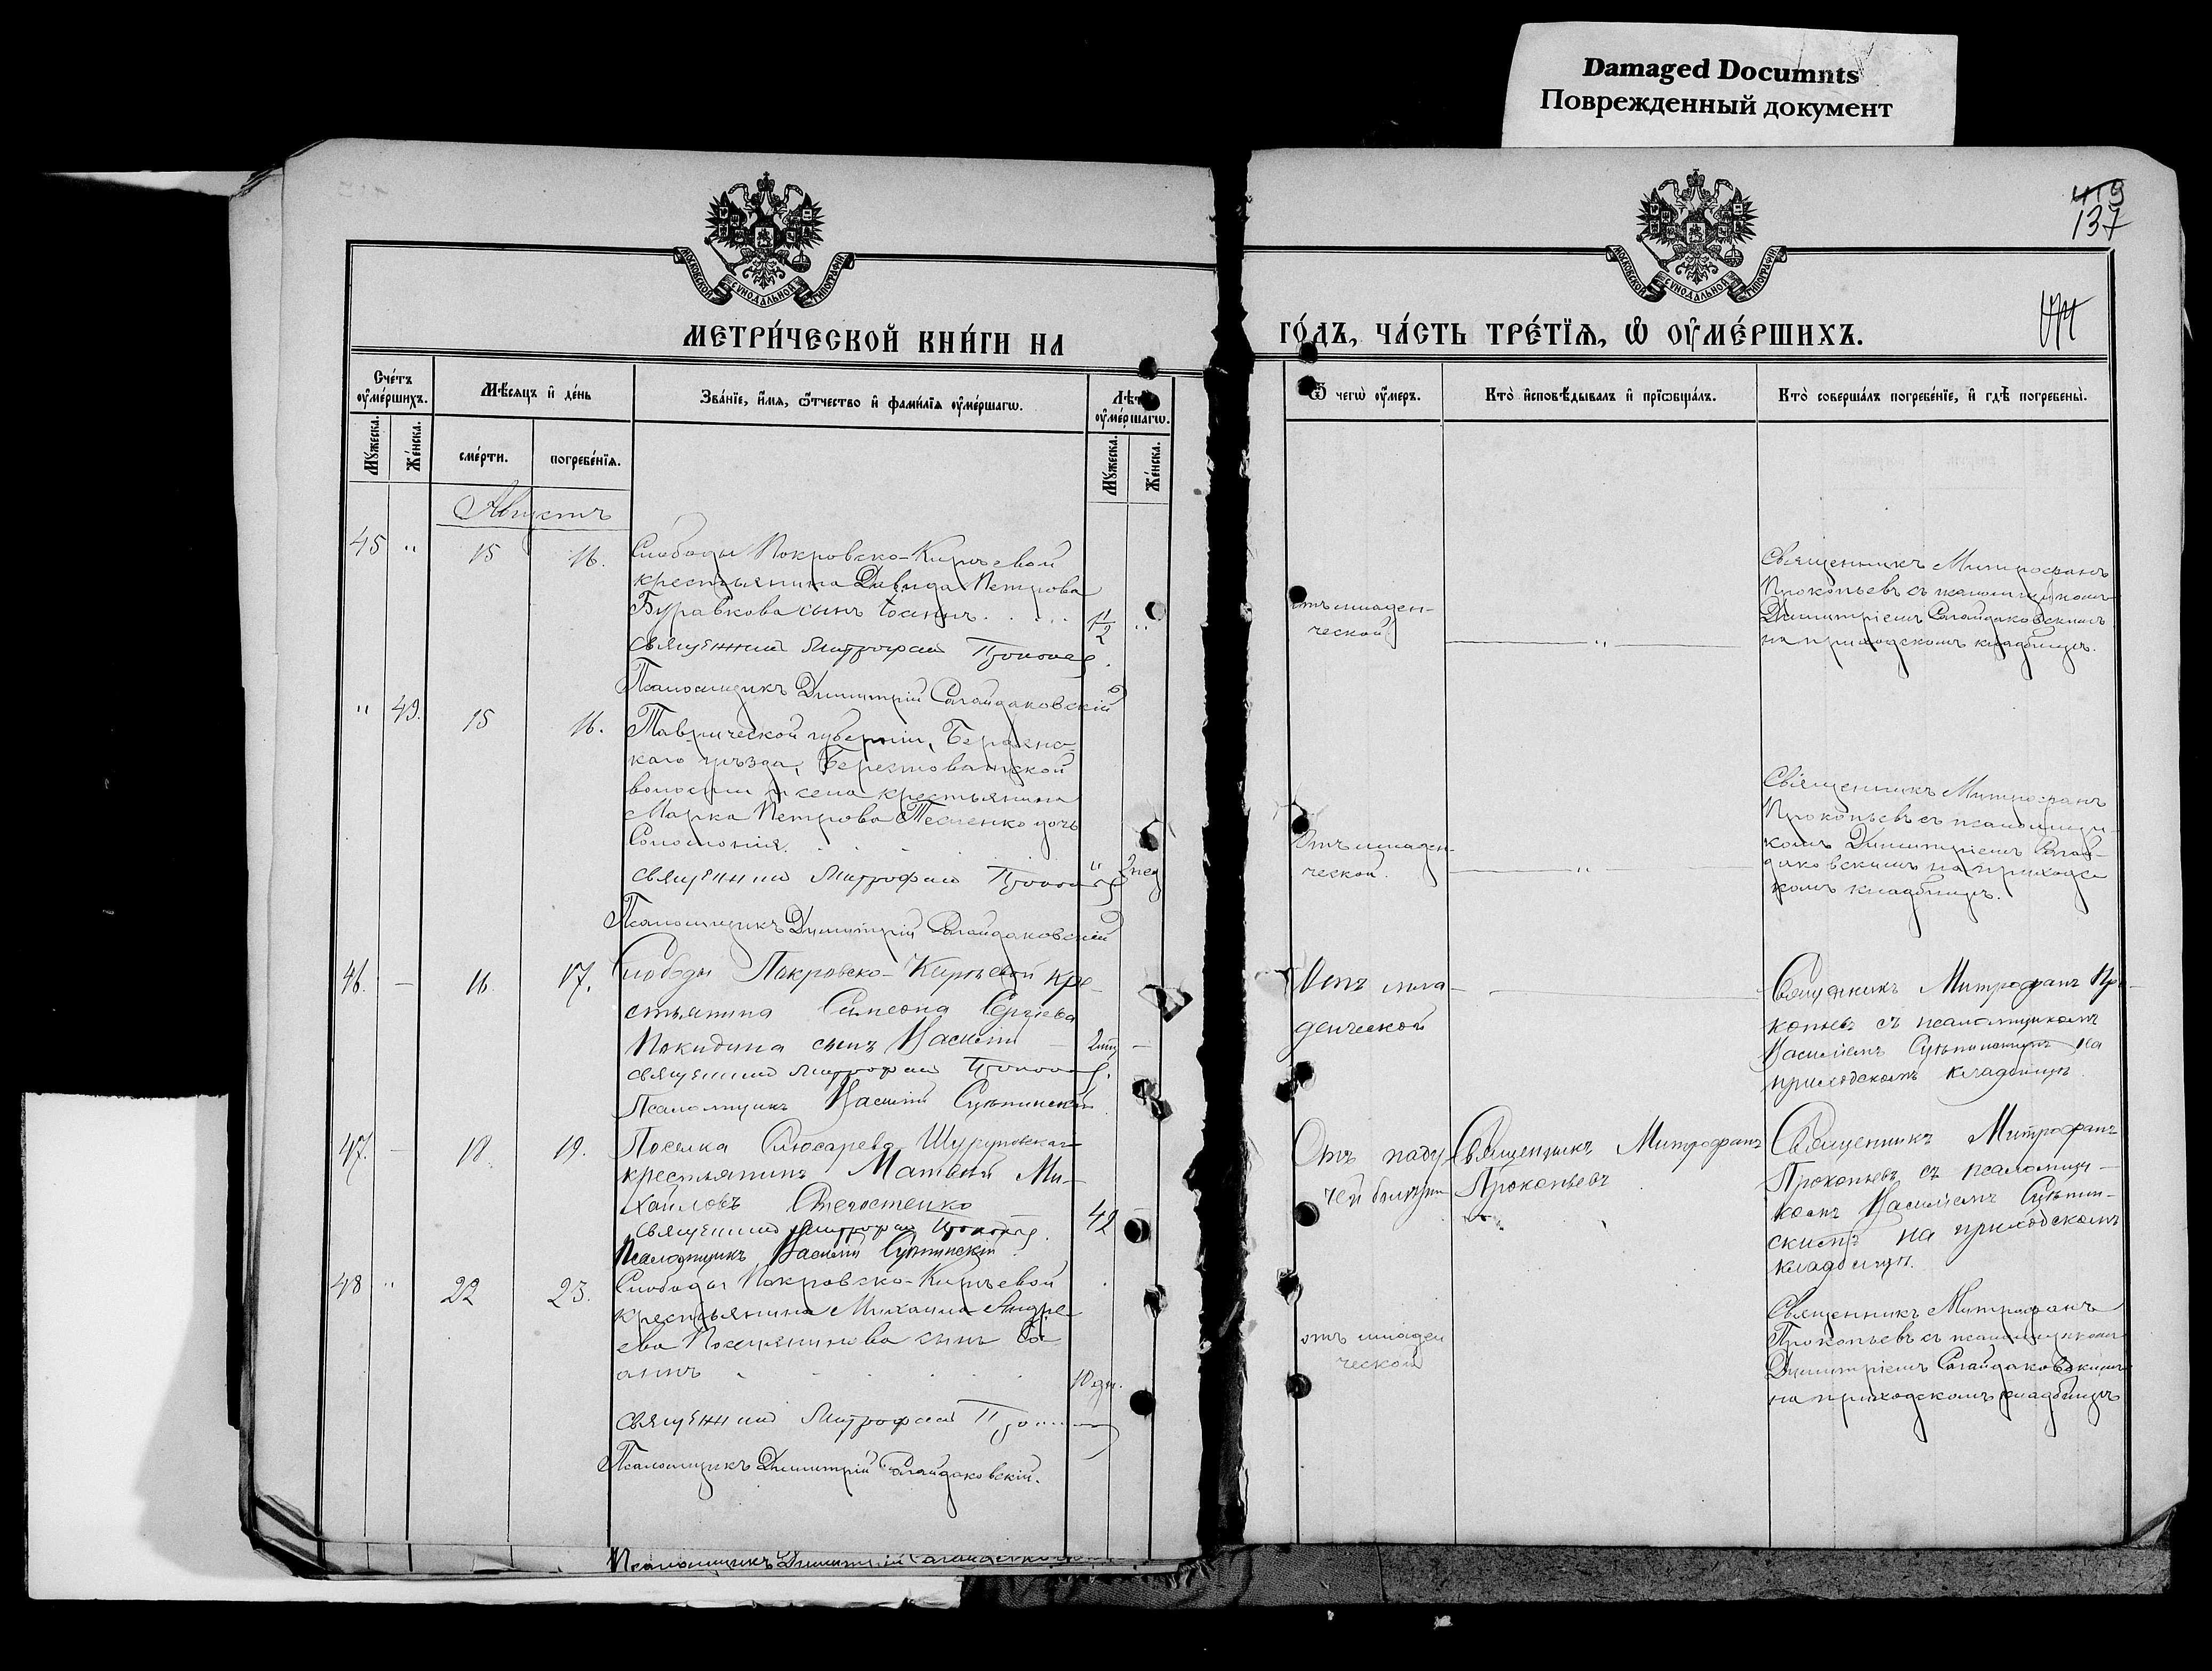 Damaged Documnts
Поврежденный документ
419
137
МОСКОВСКОЙ СѴНОДАЛЬНОЙ ТИПОГРАФІИ
МОСКОВСКОЙ СѴНОДАЛЬНОЙ ТИПОГРАФІИ
МЕТРИ́ЧЕСКОЙ КНИ́ГИ НА
ГО́ДЪ, ЧА́СТЬ ТРЕ́ТЇѦ, Ѡ҆ ОУ҆МЕ́РШИХЪ.
Сче́тъ оу҆ме́ршихъ.
Мѣ́сѧцъ и҆ де́нь
Зва́нїе, и҆́мѧ, ѻ҆́тчество и҆ фами́лїѧ оу҆ме́ршагѡ.
Лѣта̀ оу҆ме́ршагѡ.
Ѿ чегѡ̀ оу҆́меръ.
Кто̀ и҆сповѣ́дывалъ и҆ прїѡбща́лъ.
Кто̀ соверша́лъ погребе́нїе, и҆ гдѣ̀ погребены̀.
Мꙋ́жеска.
Же́нска.
сме́рти.
погребе́нїѧ.
Мꙋ́жеска.
Же́нска.
Августъ
45 " 15 16.
Слободы Покровско-Киръевой
крестьянина Давида Петрова
Буравкова сынъ Іоаннъ . . . . 1/2 "
священник Митрофан Прокопьев.
Псаломщикъ Димитрій Сагайдаковскій
Отъ младен-
ческой
"
Священникъ Митрофанъ
Прокопьевъ съ псаломщикомъ
Димитріемъ Сагайдаковскимъ
на приходскомъ кладбищѣ.
" 49. 15 16.
Таврической губерніи, Бердянс-
каго уѣзда, Берестоватской
волости и села крестьянина
Марка Петрова дочь
Соломонія. " 2 нед
священник Митрофан Прокопьев
Псаломщикъ Димитрій Сагайдаковскій
Отъ младен-
ческой.
"
Священникъ Митрофанъ
Прокопьевъ съ псаломщи-
комъ Димитріемъ Сагай-
даковскимъ на приходс
комъ кладбищѣ.
46. — 16 17.
Слободы Покровско-Киръевой кре-
стьянина Симеона Сергіева
Покидина сынъ Василій —
священник Митрофан Прокопьев.
Псаломщикъ Василій
Отъ мла-
денческой
Священникъ Митрофанъ Про-
копьевъ съ псаломщикомъ
Василіемъ на
приходскомъ кладбищѣ
47. — 18. 19.
Поселка Слюсарева
крестьянинъ Матвѣй Ми-
хайловъ 42
священник Митрофан Прокопьев.
Псаломщикъ Василій
Отъ паду-
чей болѣзни
Священникъ Митрофанъ
Прокопьевъ
Священникъ Митрофанъ
Прокопьевъ съ псаломщи-
комъ Василіемъ
на приходскомъ
кладбищѣ.
48 " 22 23.
Слободы Покровско-Киръевой
крестьянина Михаила Андре-
ева сынъ Іо-
аннъ 10 дн.
священник Митрофан
Псаломщикъ Димитрій Сагайдаковскій.
отъ младен
ческой
Священникъ Митрофанъ
Прокопьевъ съ псаломщикомъ
Димитріемъ Сагайдаковскимъ
на приходскомъ кладбищѣ
Псаломщикъ Димитрій Сагайдаковскій